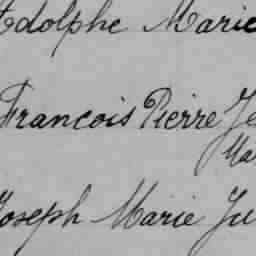 Adolphe Marie
François Pierre Je
Ma
Joseph Marie Ju